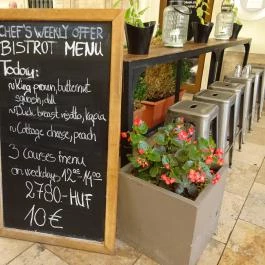 CHEF'S WEEKLY OFFER
BISTROT MENU
Today:
King prawn, butternut
squash, dill
Duck breast, risotto, kapia
Cottage cheese, peach
3 courses menu
on weekdays 12⁰⁰-14⁰⁰
2780-HUF
10€